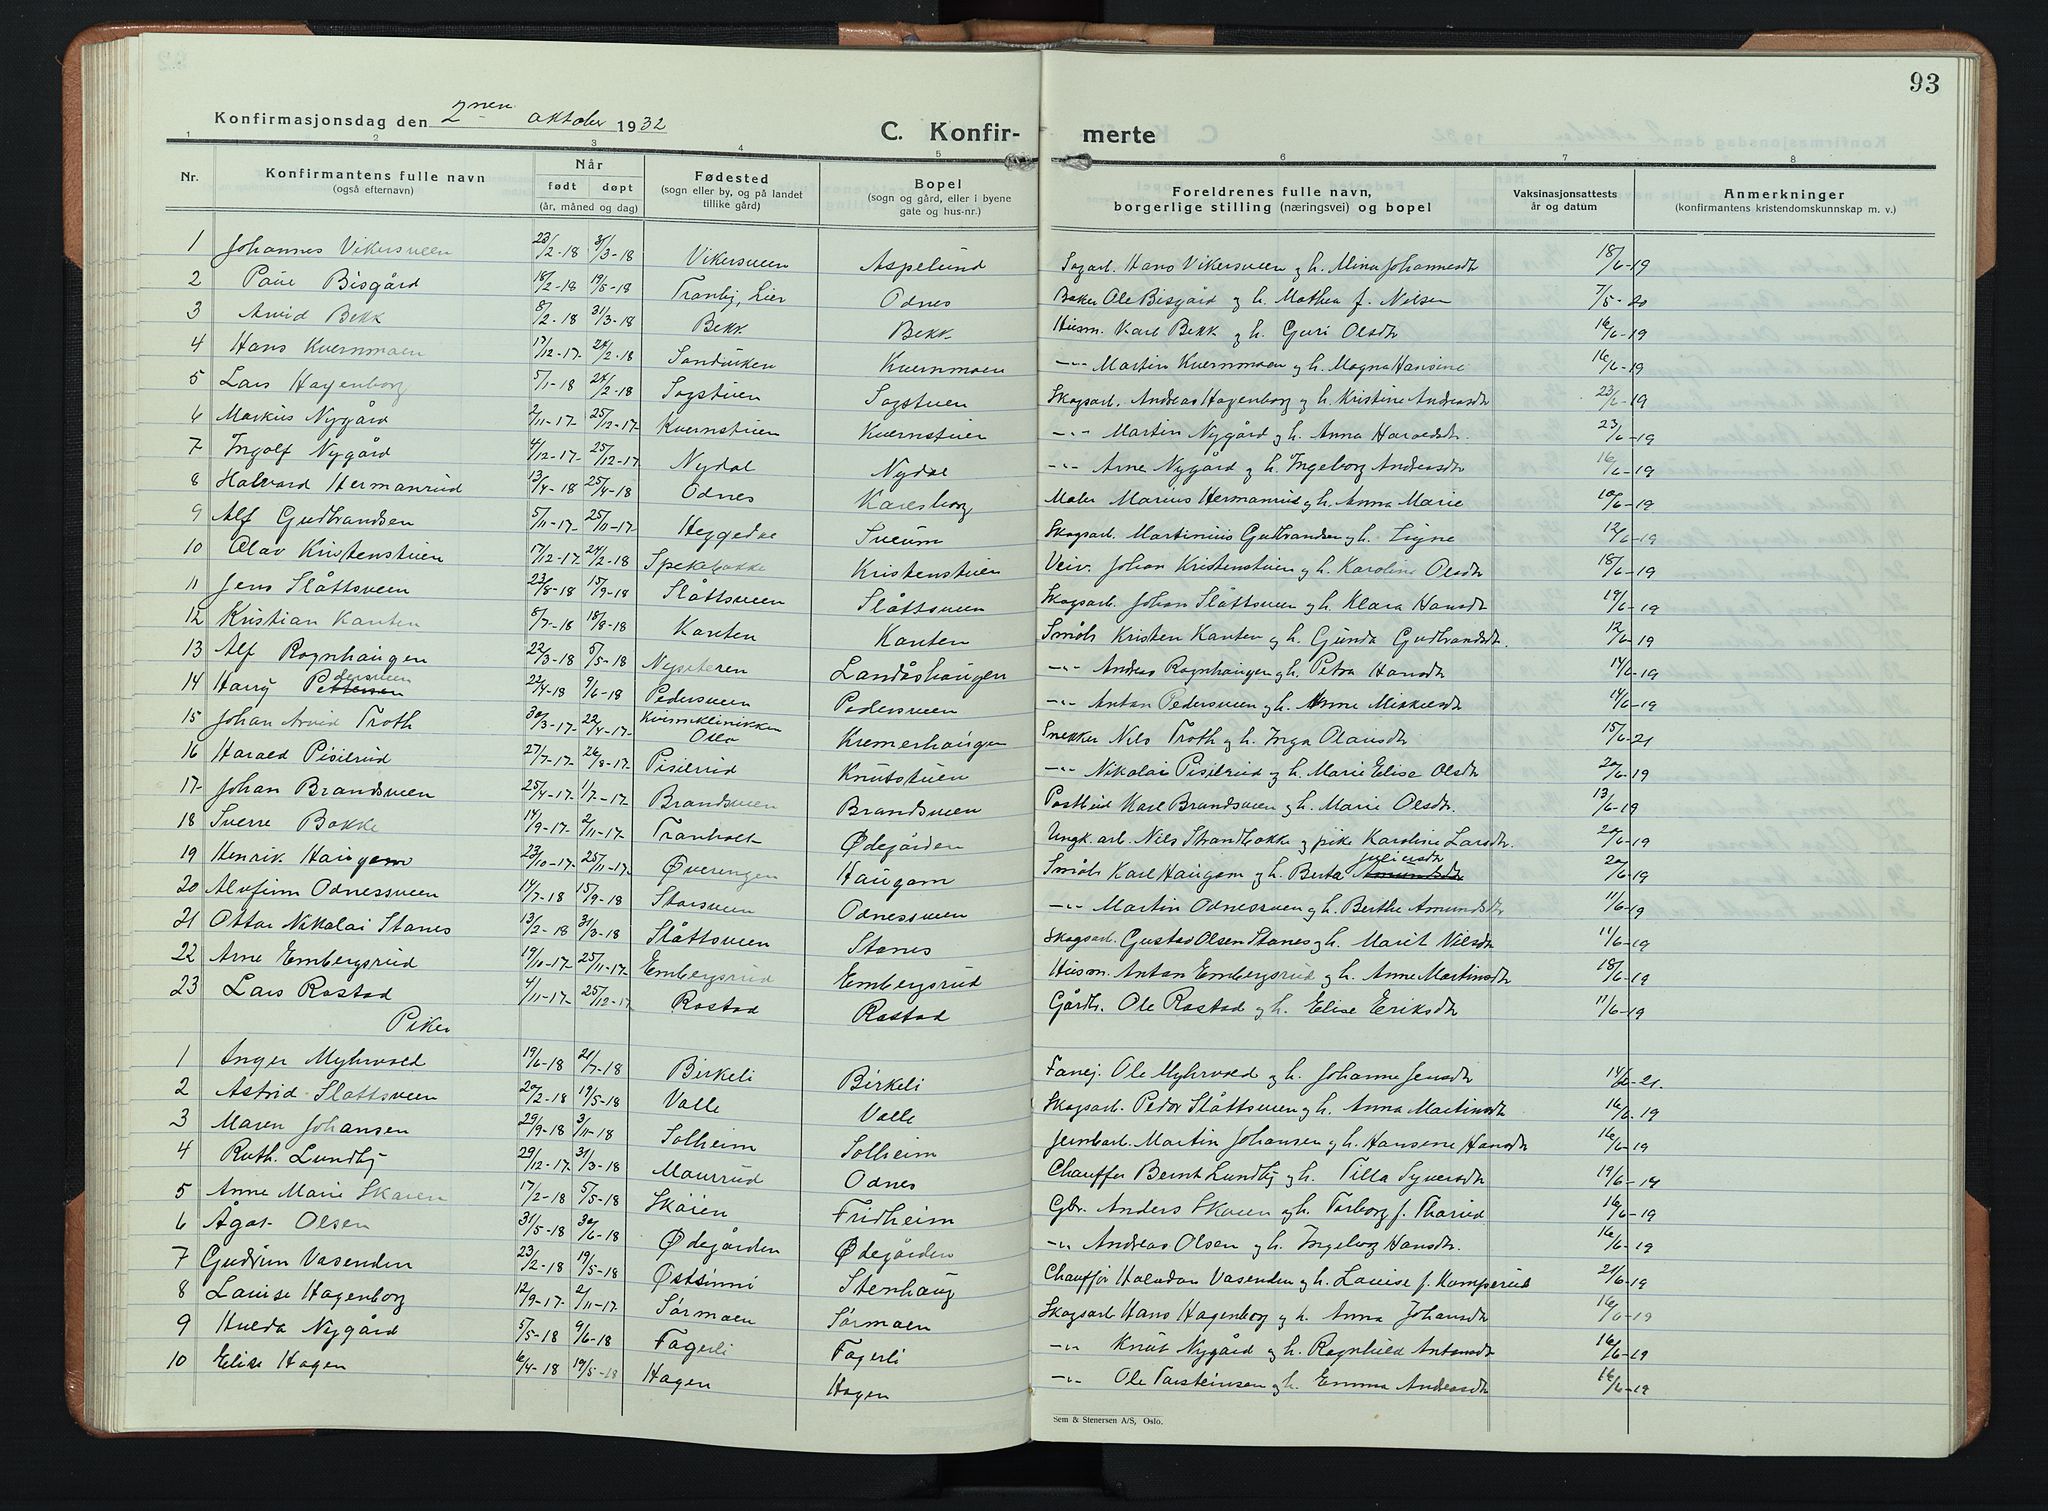 93
Konfirmasjonsdag den 2nen oktober 1932
C. Konfir- merte
1 2 3 4 5 6 7 8
Nr. Konfirmantens fulle navn (også efternavn) Når født døpt (år, måned og dag) Fødested (sogn eller by, og på landet tillike gård) Bopel (sogn og gård, eller i byene gate og hus-nr.) Foreldrenes fulle navn, borgerlige stilling (næringsvei) og bopel Vaksinasjonsattests år og datum Anmerkninger (konfirmantens kristendomskunnskap m. v.)
1 Johannes Vikersveen 23/2-18 31/3-18 Vikersveen Aspelund Sagarb. Hans Vikersveen og h. Mina Johannesdtr 18/6-19
2 Paul Bisgård 18/2-18 19/5-18 Tranby, Lier Odnes Baker Ole Bisgård og h. Mathea f. Nilsen 7/5-20
3 Arvid Bekk 8/2-18 31/3-18 Bekk Bekk Husm. Karl Bekk og h. Guri Olsdtr 16/6-19
4 Hans Kvernmoen 17/12-17 24/2-18 Sandviken Kvernmoen -"- Martin Kvernmoen og h. Magna Hansine 16/6-19
5 Lars Hagenborg 5/1-18 24/2-18 Sagstuen Sagstuen Skogsarb. Andreas Hagenborg og h. Kristine Andreasdtr 23/6-19
6 Markus Nygård 2/11-17 25/12-17 Kvernstuen Kvernstuen -"- Martin Nygård og h. Anna Haraldsdtr. 23/6-19
7 Ingolf Nygård 4/12-17 25/12-17 Nydal Nydal -"- Arne Nygård og h. Ingeborg Andreasdtr 16/6-19
8 Halvard Hermanrud 13/4-18 25/4-18 Odnes Karlsborg Maler Marius Hermanrud og h. Anna Marie 10/6-19
9 Alf Gudbrandsen 5/11-17 25/11-17 Heggedal Sveum Skogsarb. Martinius Gudbrandsen og h. Signe 12/6-19
10 Olav Kristenstuen 17/12-17 24/2-18 Spekebakke Kristenstuen Veiv. Johan Kristenstuen og h. Karoline Olsdtr 18/6-19
11 Jens Slåttsveen 23/8-18 15/9-18 Slåttsveen Slåttsveen Skogsarb. Johan Slåttsveen og h. Klara Hansdtr 19/6-19
12 Kristian Kanten 5/7-18 18/8-18 Kanten Kanten Småbr. Kristen Kanten og h. Gunda Gudbrandsdtr. 12/6-19
13 Alf Rognhaugen 22/3-18 5/5-18 Nyseteren Landåshaugen -"- Andreas Rognhaugen og h. Petra Hansdtr 14/6-19
14 Harry Pedersveen 22/4-18 9/6-18 Pedersveen Pedersveen -"- Anton Pedersveen og h. Anne Mikkelsdtr 14/6-19
15 Johan Arvid Troth 30/3-17 22/4-17 Kvinneklinikken Oslo Kremerhaugen Snekker Nils Troth og h. Inga Olausdtr 15/6-21
16 Harald Pisilrud 27/7-17 26/8-17 Pisilrud Knutstuen -"- Nikolai Pisilrud og h. Marie Elise Olsdtr 20/6-19
17 Johan Brandsveen 25/4-17 1/7-17 Brandsveen Brandsveen Postbud Karl Brandsveen og h. Marie Olsdtr. 13/6-19
18 Sverre Bakke 14/9-17 2/11-17 Tranholt Ødegården Ungk. arb. Nils Strandbakke og pike Karoline Larsdtr. 20/6-19
19 Henrik Haugom 23/10-17 25/11-17 Øverengen Haugom Småbr. Karl Haugom og h. Berta Juliusdtr 20/6-19
20 Alvfinn Odnessveen 14/7-18 15/9-18 Storsveen Odnessveen -"- Martin Odnessveen og h. Berthe Amundsdtr 11/6-19
21 Ottar Nikolai Stanes 13/2-18 31/3-18 Slåttsveen Stanes Skogsarb. Gustav Olsen Stanes og h. Marit Nilsdtr 11/6-19
22 Arne Embergsrud 19/10-17 25/11-17 Embergsrud Embergsrud Husm. Anton Embergsrud og h. Anne Martinsdtr 18/6-19
23 Lars Rastad 4/11-17 25/12-17 Rastad Rastad Gårdbr. Ole Rastad og h. Elise Eriksdtr 11/6-19
Piker
1 Inger Myhrvold 19/6-18 21/7-18 Birkeli Birkeli Fanej. Ole Myhrvold og h. Johanne Jensdtr 14/6-21.
2 Astrid Slåttsveen 20/2-18 19/5-18 Valle Valle Skogsarb. Peder Slåttsveen og h. Anna Martinsdtr 16/6-19
3 Maren Johansen 29/9-18 3/11-18 Solheim Solheim Jernbarb. Martin Johansen og h. Hansine Hansdtr 16/6-19
4 Ruth Lundby 29/12-17 31/3-18 Maurud Odnes Chauffør Bernt Lundby og h. Tilla Syversdtr 19/6-19
5 Anne Marie Skoien 17/2-18 5/5-18 Skoien Fridheim Gbr. Anders Skoien og h. Torborg f. Thorud 16/6-19
6 Ågot Olsen 31/5-18 30/6-18 Ødegården Ødegården -"- Andreas Olsen og h. Ingeborg Hansdtr. 16/6-19
7 Gudrun Vasenden 23/2-18 19/5-18 Østsinni Stenhaug Chauffør Halvdan Vasenden og h. Louise f. Kamperud 21/6-19
8 Louise Hagenborg 12/9-17 2/11-17 Sørmoen Sørmoen Skogsarb Hans Hagenborg og h. Anna Johansdtr 16/6-19
9 Hulda Nygård 5/5-18 9/6-18 Fagerli Fagerli -"- Knut Nygård og h. Ragnhild Antonsdtr 16/6-19
10 Elise Hagen 6/4-18 19/5-18 Hagen Hagen -"- Ole Torsteinsen og h. Emma Andreasdtr 16/6-19
Sem & Stenersen A/S, Oslo.